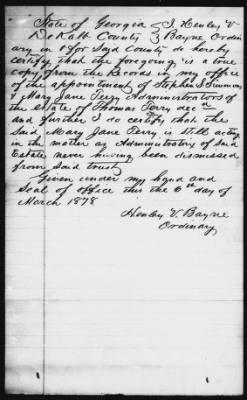 State of Georgia } I Henley V.
DeKalb County } Bayne Ordin
ary in & for Said County do hereby
certify that the foregoing is a true
copy from the Records in my office
of the appointment of Stephen T
& Mary Jane Terry Administrators of
the Estate of Thomas Terry decd
and further I do certify that the
Said Mary Jane Terry is still acting
in the matter as Administratrix of Said
Estate never having been dismissed
from Said trust
Given under my hand and
Seal of office this the 6th day of
March 1878
Henley V. Bayne
Ordinary